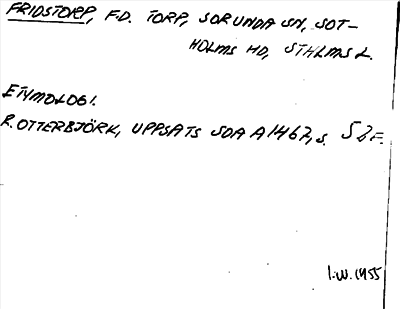 FRIDSTORP, F.D. TORP, SORUNDA SN, SOT-
HOLMS HD, STHLMS L.
ETYMOLOGI.
R. OTTERBJÖRK, UPPSATS SOA A 1467, s. 52 F.
I.W. 1955